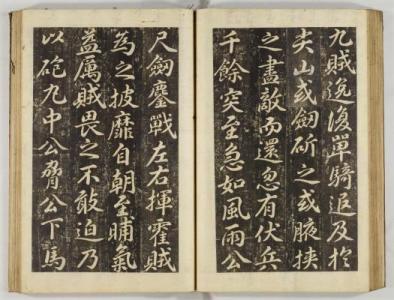 九賊逸復單騎追及於
夾山或劍斫之或腋挾
之盡敵而還忽有伏兵
千餘突至急如風雨公
尺劍鏖戰左右揮霍賊
為之披靡自朝至晡氣
益厲賊畏之不敢迫乃
以砲丸中公脅公下馬